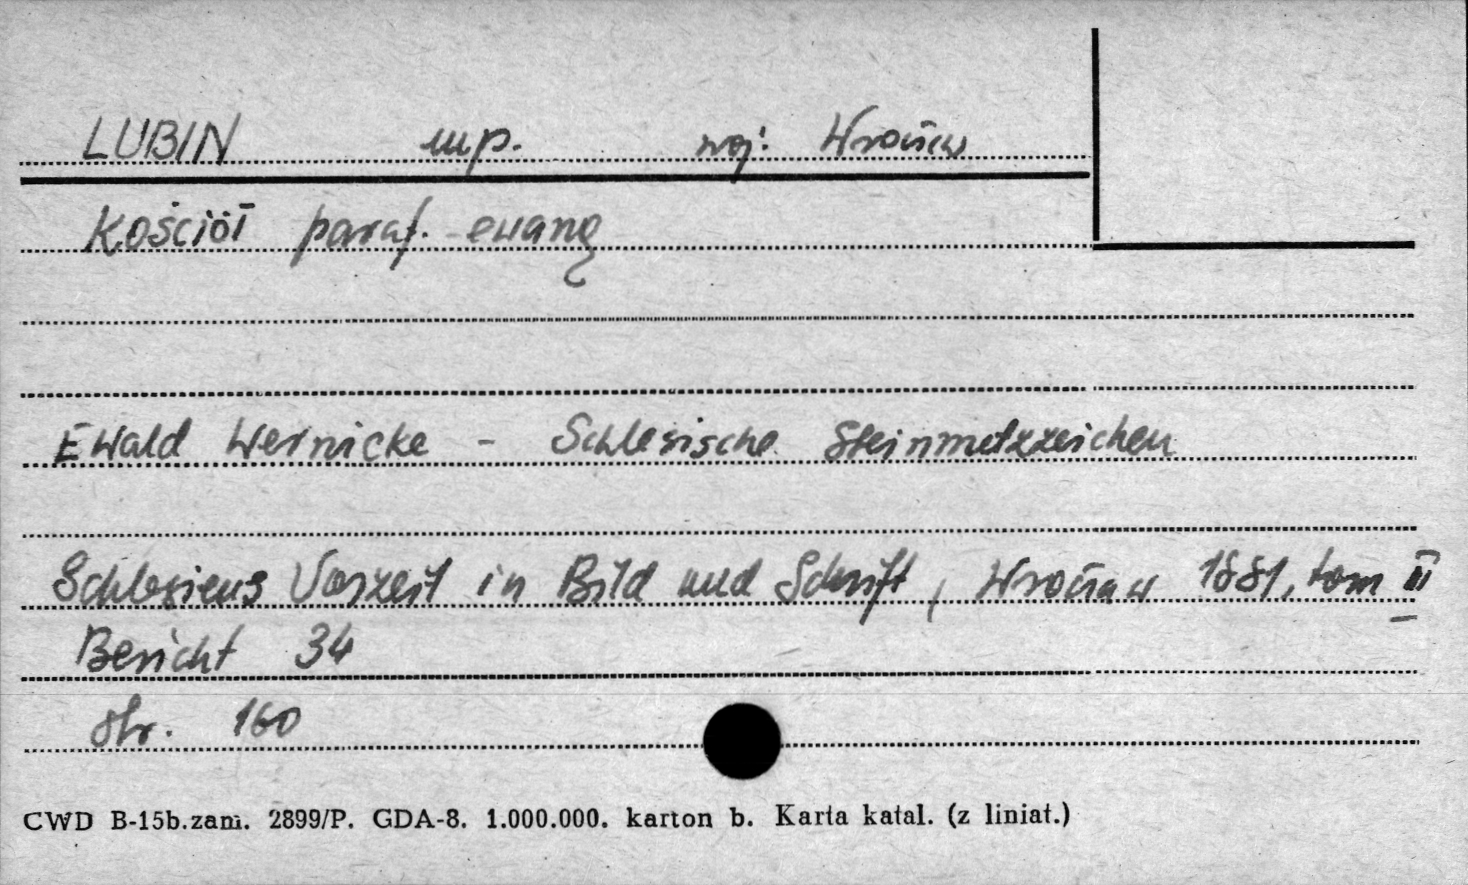 LUBIN mp. woj: Wrocław
Kościół paraf. ewang
Ewald Wernicke - Schlesische Steinmetzzeichen
Schlesiens Vorzeit in Bild und Schrift, Wrocław 1881, tom III
Bericht 34
str. 160
CWD B-15b.zam. 2899/P. GDA-8. 1.000.000. karton b. Karta katal. (z liniat.)